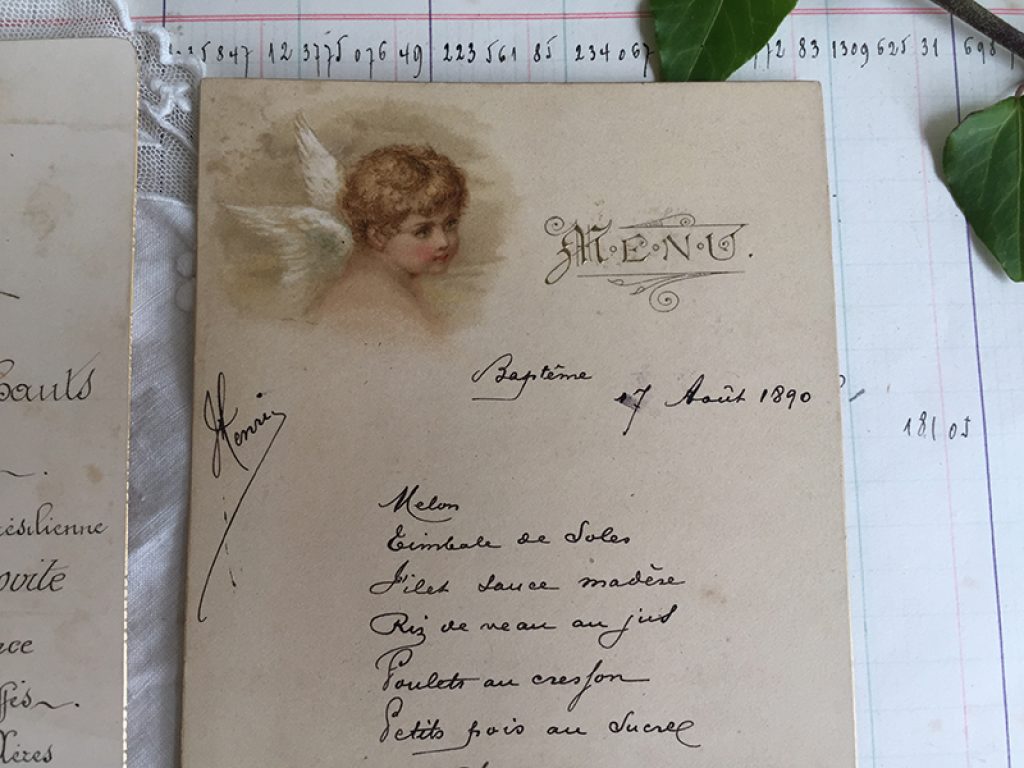 847 12 3775 076 49 223 561 85 234 067 72 83 1309 625 31 698
M·E·N·U.
Baptême
17 Août 1890
Henri
18 | 05
Melon
Timbale de Soles
Filet sauce madère
Riz de veau au jus
Poulets au cresson
Petits pois au Sucre
ésilienne